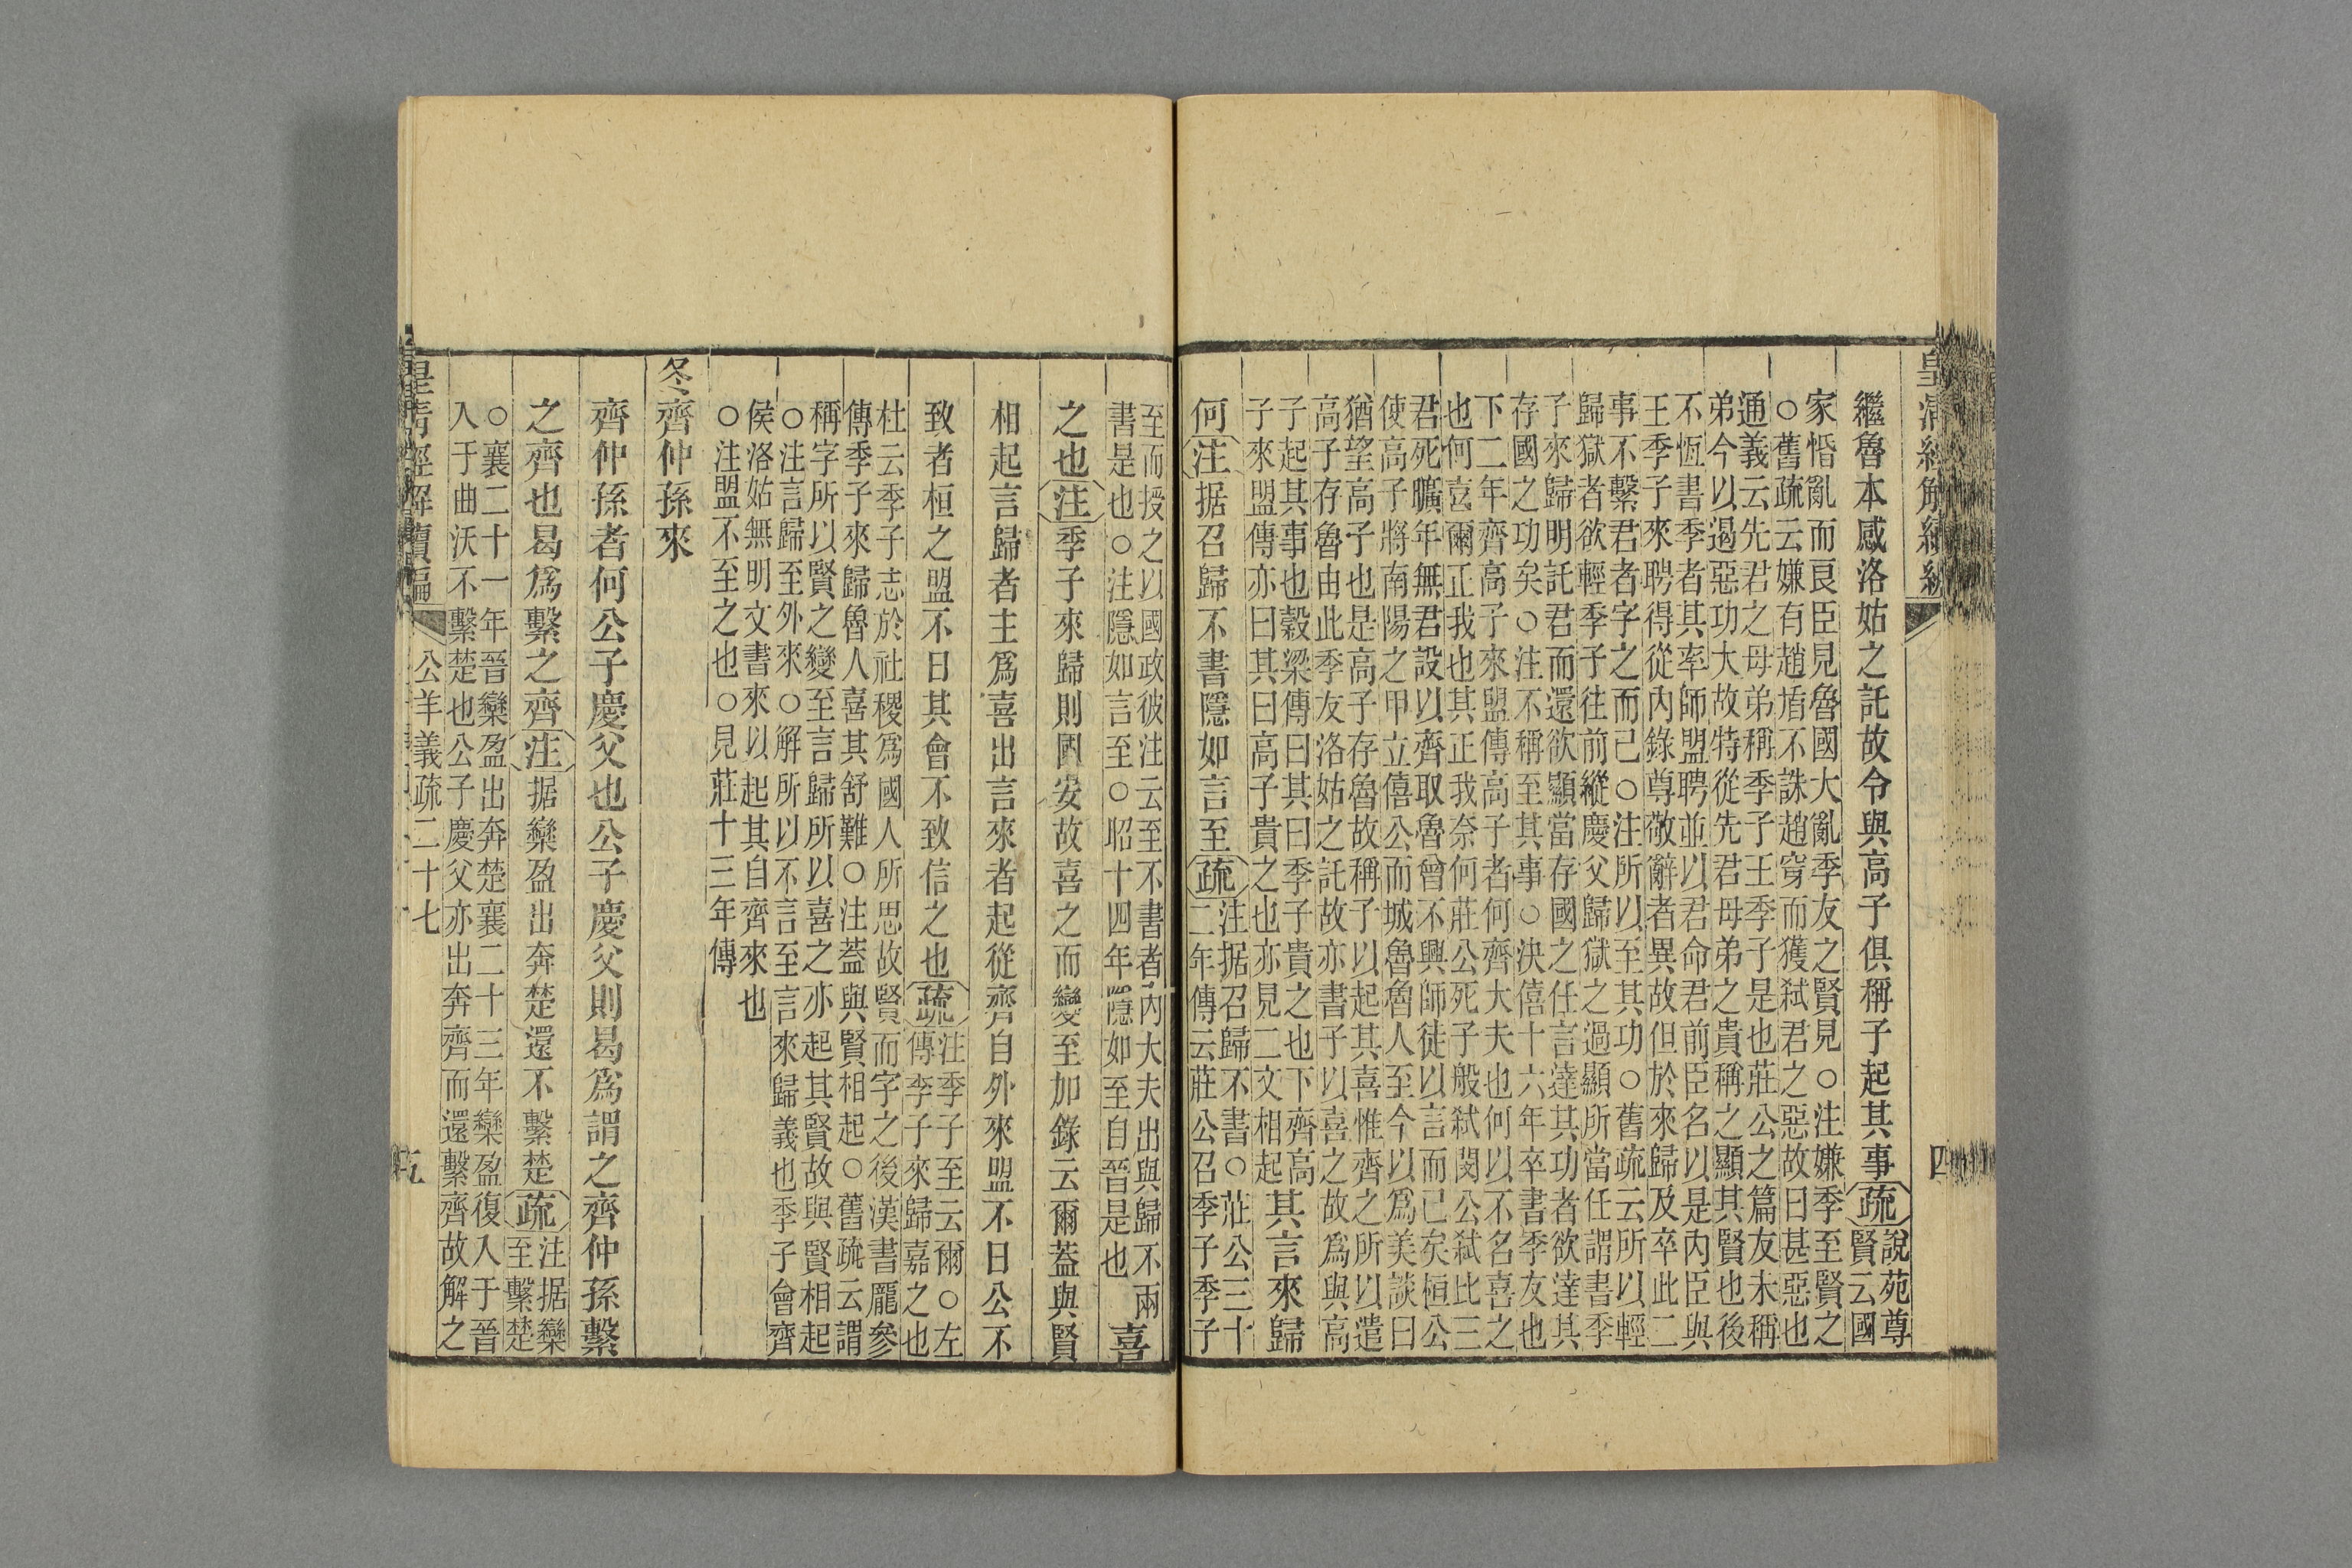 皇清經解續編
四
繼魯本感洛姑之託故令與高子俱稱子起其事疏說苑尊
賢云國
家惛亂而良臣見魯國大亂季友之賢見○注嫌季至賢之
○舊疏云嫌有趙盾不誅趙穿而獲弑君之惡故曰甚惡也
通義云先君之母弟稱季子王季子是也莊公之篇友未稱
弟今以遏惡功大故特從先君母弟之貴稱之顯其賢也後
不恆書季者其率師盟聘並以君命君前臣名以是內臣與
王季子來聘得從內錄尊敬辭者異故但於來歸及卒此二
事不繫君者字之而已○注所以至其功○舊疏云所以輕
歸獄者欲輕季子往前縱慶父歸獄之過顯所當任謂書季
子來歸明託君而還欲顯當存國之任言達其功者欲達其
存國之功矣○注不稱至其事○決僖十六年卒書季友也
下二年齊高子來盟傳高子者何齊大夫也何以不名喜之
也何喜爾正我也其正我奈何莊公死子般弑閔公弑比三
君死曠年無君設以齊取魯曾不興師徒以言而已矣桓公
使高子將南陽之甲立僖公而城魯魯人至今以爲美談曰
猶望高子也是高子存魯故稱子以起其喜惟齊之所以遣
高子存魯由此季友洛姑之託故亦書子以喜之故爲與高
子起其事也穀梁傳曰其曰季子貴之也下齊高
子來盟傳亦曰其曰高子貴之也亦見二文相起
其言來歸
何注据召歸不書隱如言至疏注据召歸不書○莊公三十
二年傳云莊公召季子季子
至而授之以國政彼注云至不書者內大夫出與歸不兩
書是也○注隱如言至○昭十四年隱如至自晉是也
喜
之也注季子來歸則國安故喜之而變至加錄云爾蓋與賢
相起言歸者主爲喜出言來者起從齊自外來盟不日公不
致者桓之盟不日其會不致信之也疏注季子至云爾○左
傳季子來歸嘉之也
杜云季子志於社稷爲國人所思故賢而字之後漢書龐參
傳季子來歸魯人喜其舒難○注蓋與賢相起○舊疏云謂
稱字所以賢之變至言歸所以喜之亦起其賢故與賢相起
○注言歸至外來○解所以不言至言來歸義也季子會齊
侯洛姑無明文書來以起其自齊來也
○注盟不至之也○見莊十三年傳
冬齊仲孫來
齊仲孫者何公子慶父也公子慶父則曷爲謂之齊仲孫繫
之齊也曷爲繫之齊注据欒盈出奔楚還不繫楚疏注据欒
至繫楚
○襄二十一年晉欒盈出奔楚襄二十三年欒盈復入于晉
入于曲沃不繫楚也公子慶父亦出奔齊而還繫齊故解之
皇清經解續編
公羊義疏二十七
五